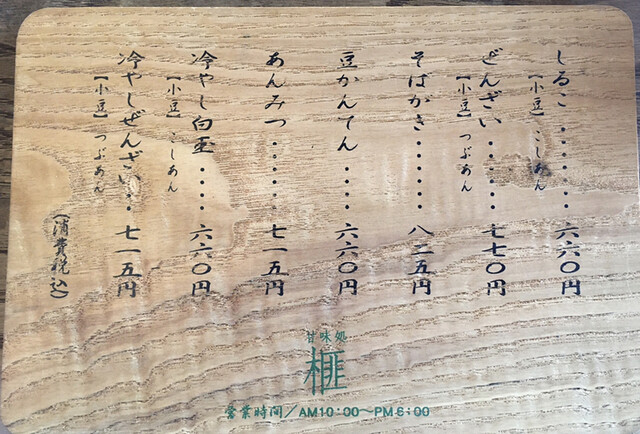 しるこ・・・・・・・六六〇円
【小豆】こしあん
ぜんざい・・・・・・七七〇円
【小豆】つぶあん
そばがき・・・・・・八二五円
豆かんてん・・・・六六〇円
あんみつ・・・・・・七一五円
冷やし白玉・・・・六六〇円
【小豆】こしあん
冷やしぜんざい・・七一五円
【小豆】つぶあん
(消費税込)
甘味処
榧
営業時間/AM10:00~PM6:00